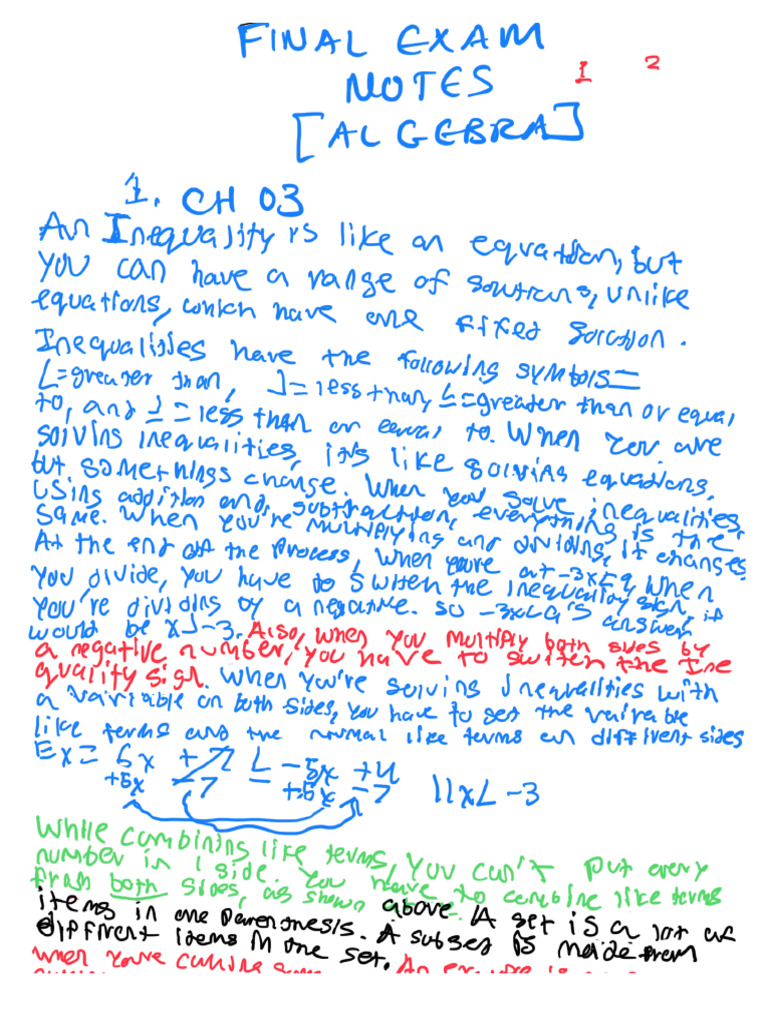 FINAL EXAM
NOTES 1 2
[ALGEBRA]
1. CH 03
An Inequality is like an equation, but
you can have a range of solutions, unlike
equations, which have one fixed solution.
Inequalities have the following symbols=
L=greater than, J=less than, L=greater than or equal
to, and J=less than or equal to. When you are
solving inequalities, it's like solving equations,
but somethings change. When you solve inequalities
using addition and subtraction, everything is the
same. When you're multiplying and dividing, it changes.
At the end off the process, when you're at -3xL9, when
you divide, you have to switch the inequality sign, if
you're dividing by a negative. so -3xL9's answer
would be xJ-3. Also, when you multiply both sides by
a negative number, you have to switch the Ine
quality sign. When you're solving Inequalities with
a variable on both sides, you have to get the variable
like terms and the normal like terms on different sides
Ex= 6x + 7 L -5x +4
+5x -7 = +5x -7 11xL -3
While combining like terms, you can't put every
number in 1 side. You have to combine like terms
from both sides, as shown above. A set is a lot of
items in one parenthesis. A subset is made from
different items in one set.
when you're